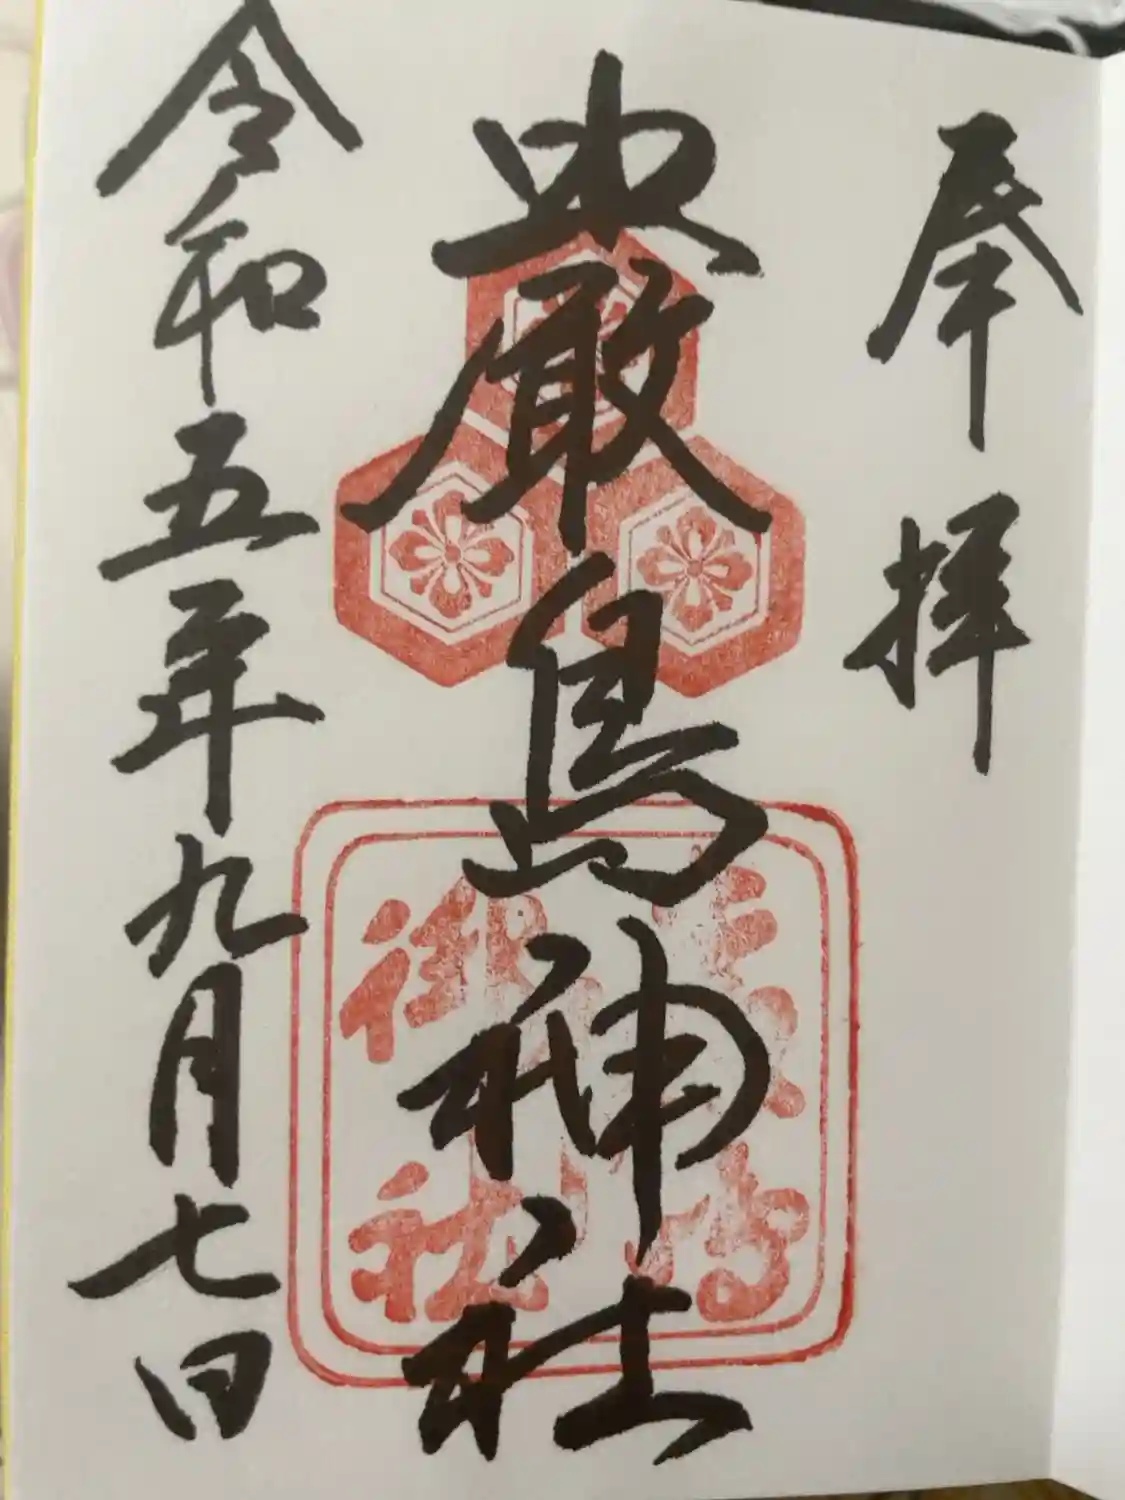 奉拝
嚴島神社
令和五年九月七日